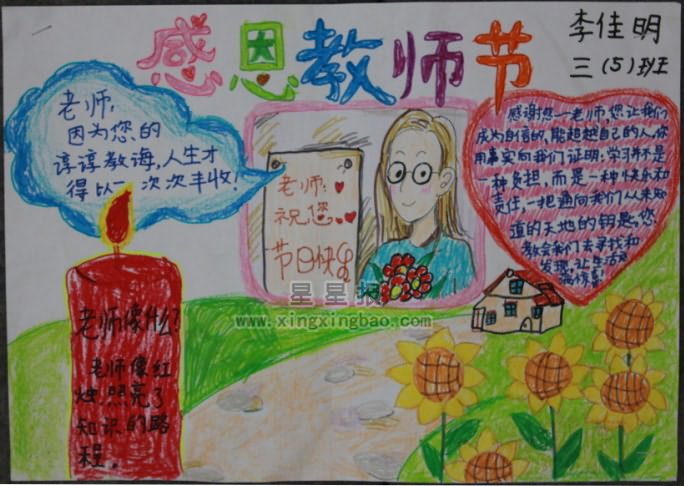 感恩教师节
李佳明
三(5)班
老师，
因为您的
谆谆教诲，人生才
得以一次次丰收！
老师：
祝您
节日快乐
感谢您—老师，您让我们
成为自信的，能超越自己的人，你
用事实向我们证明：学习并不是
一种负担，而是一种快乐和
责任，一把通向我们从未知
道的天地的钥匙，您
教会我们去寻找和
发现，让生活充
满惊喜！
老师像什么？
老师像红
烛照亮了
知识的路
程。
星星报
www.xingxingbao.com